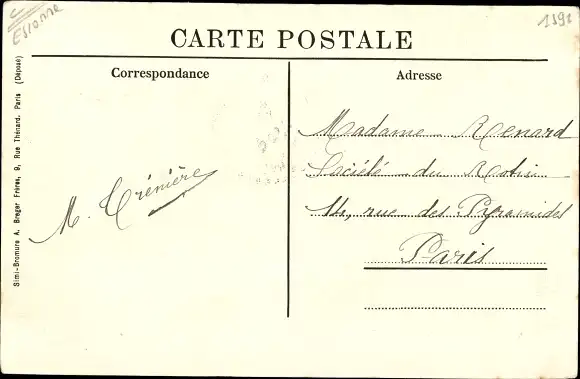 Essonne
1391
CARTE POSTALE
Correspondance
Adresse
Simi-Bromure A. Breger Frères, 9, Rue Thénard, Paris (Déposé)
M. Trénière
Madame Renard
Société du Rotin
14, rue des Pyramides
Paris